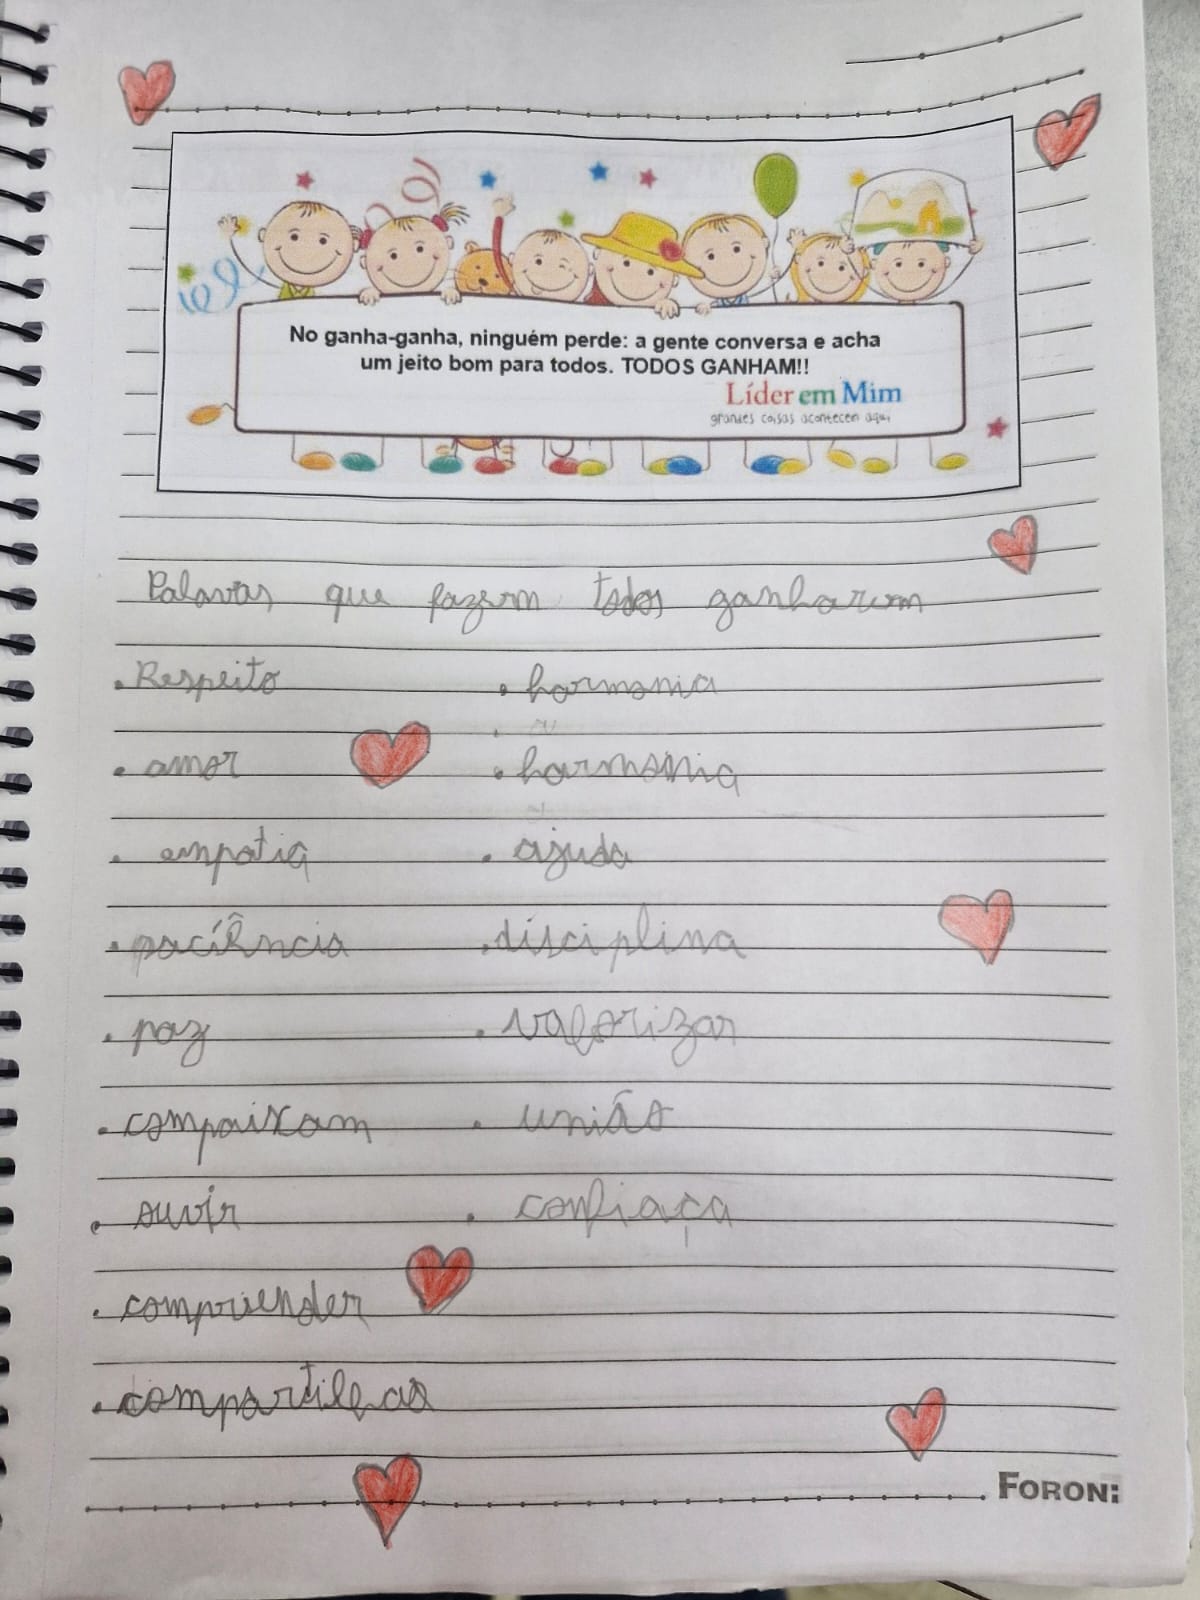 No ganha-ganha, ninguém perde: a gente conversa e acha
um jeito bom para todos. TODOS GANHAM!!
Líder em Mim
grandes coisas acontecem aqui
Palavras que fazem todos ganharem
• Respeito • harmonia
• amor • harmonia
• empatia • ajuda
• pacíência • disciplina
• paz • valorizar
• compaixam • união
• ouvir • confiaça
• comprender
• compartilhar
FORONI